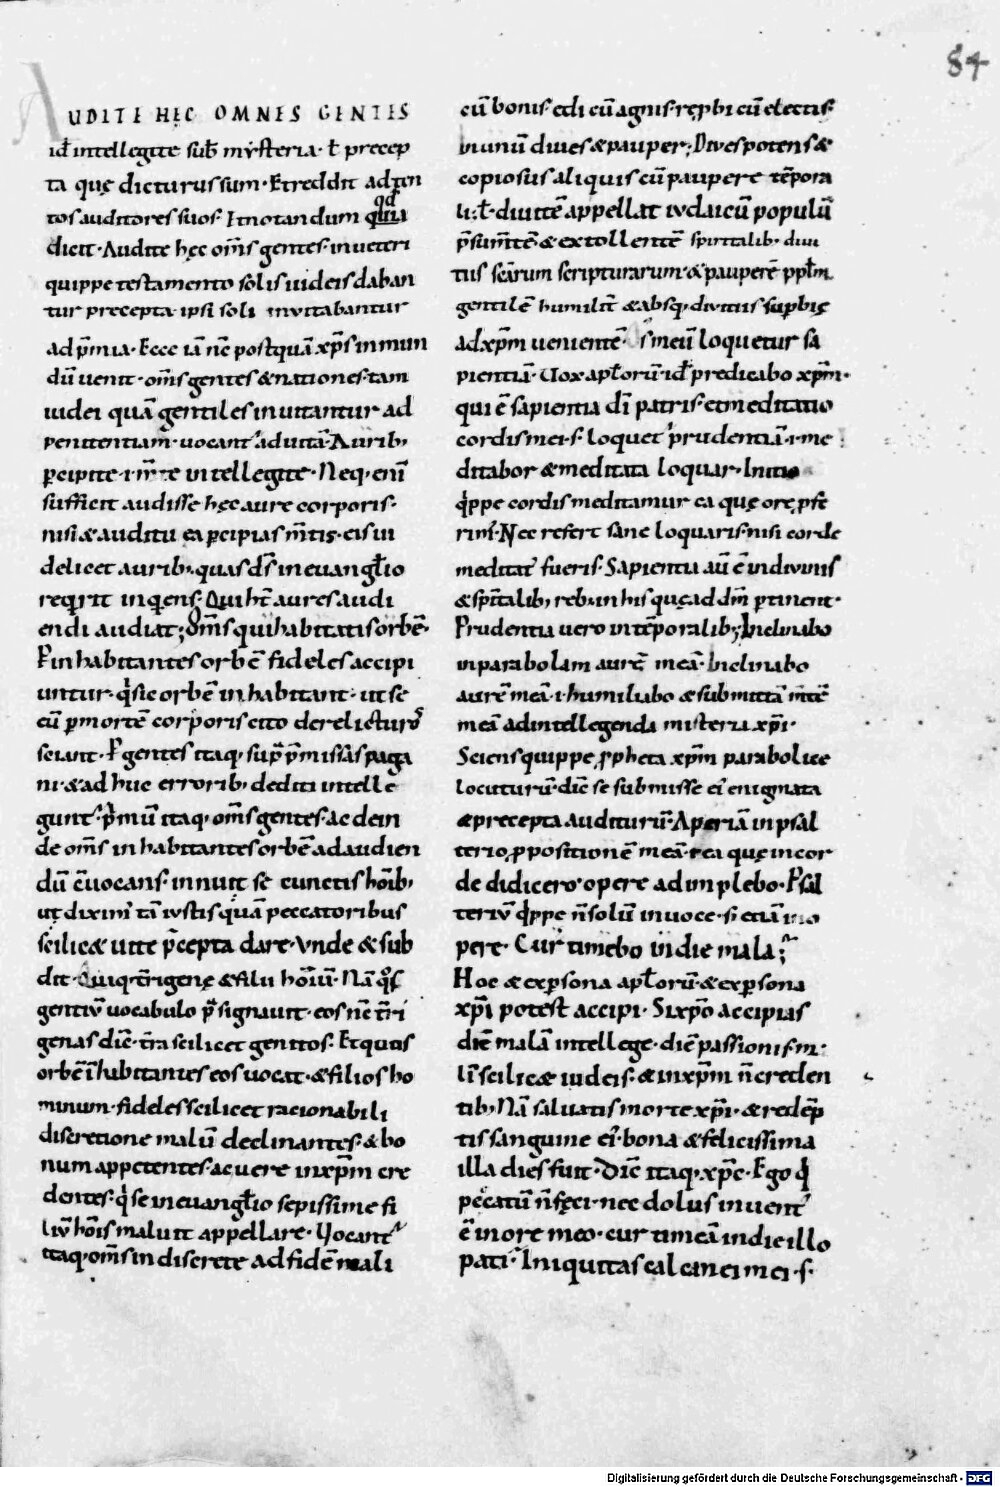 84
AUDITE HĘC OMNES GENTES
id̄ intellegite sub mẏsteria · ł precep
ta quę dicturus sum · Et reddit adten
tos auditores suos · Et notandum quia
qđ
dicit · Audite hęc om̄s gentes · in veteri
quippe testamento solis iudeis daban
tur precepta · ipsi soli invitabantur
ad p̄mia · Ecce iā nc̄ postquā xp̄s in mun
dū uenit · om̄s gentes & nationes · tam
iudei quā gentiles inuitantur ad
penitentiam · uocant' ad uitā · Aurib;
ꝑcipite · i · m̄te intellegite · Neq; eni̅
sufficit audisse hęc aure corporis ·
nisi & auditu ea ꝑcipias m̄tis · eis ui
delicet aurib; quas dn̄s in euangł̄io
req̇rit inq̇ens · Qui ht̄ aures audi
endi audiat; Om̄s qui habitatis orbē ·
P inhabitantes orbē fideles accipi
untur · q̇ sic orbē inhabitant · ut se
cū ꝑ mortē corporis cito derelicturos
sciant · P gentes itaq; sup̄ p̄missas paga
ni · & adhuc errorib; dediti intelle
gunt · P̄mū itaq; om̄s gentes · ac dein
de om̄s inhabitantes orbē ad audien
dū euocans · innuit se cunctis hōib;
ut diximus tā iustis quā peccatoribus
scilic& uite p̄cepta dare · Vnde & sub
dit · Quiq; t̄rigenę & filii hōiū · Nā q̊s
gentiū uocabulo p̄signauit · eos nc̄ t̄ri
genas dic̄ · t̄ra scilicet genitos · Et quos
orbē ī̄habitantes eos uocat · & filios ho
minum · fideles scilicet racionabili
discretione malū declinantes · & bo
num appetentes · ac uere in xp̄m cre
dentes · q̇ se in euangł̄io sepissime fi
liū hōis maluit appellare · Vocant'
itaq; om̄s indiscrete ad fidē mali
cū bonis · edi cū agnis · rępbi cū electis ·
In unū diues & pauper; Diues potens &
copiosus aliquis cū paupere tēpora
li; ł · diuitē appellat iudaicū populū
p̄sum̄tē & extollentē spiritalib; diui
tiis sc̄arum scripturarum · & pauperē ppł̄m
gentilē humilit̄ & absq; diuitiis supbię
ad xp̄m uenientē · Os meū loquetur sa
pientiā · Uox apł̄orū · id̄ predicabo xp̄m ·
qui ē sapientia dī patris · et meditatio
cordis mei · s · loquet' prudentiā · i · me
ditabor & meditata loquar · Initio
q̇ppe cordis meditamur ea quę orę pfe
rim' · Nec refert sane loquaris · nisi corde
meditat' fueris · Sapientia aū ē in diuinis
& spīitalib; rebus in his quę ad dm̄ ꝑtinent ·
Prudentia uero in tēporalib; Inclinabo
in parabolam aurē meā · Inclinabo
aurē meā · i · humiliabo & submittā m̄tē
meā ad intellegenda misteria xp̄i ·
Sciens quippe ꝓpheta xp̄m parabolice
locuturū · dic̄ se submisse ei' enigmata
& precepta auditurū · Aperiā in psal
terio ꝓpositionē meā · ea quę in cor
de didicero · opere adimplebo · Psal
teriū q̇ppe n̄ solū in uoce · s; etiā in o
pere · Cur timebo in die mala;
Hoc & ex ꝑsona apł̄orū · & ex ꝑsona
xp̄i potest accipi · Si xp̄o accipias
diē malā intellege · diē passionis · ma
lī scilic& iudeis · & in xp̄m n̄ creden
tib; Nā saluatis morte xp̄i · & redēp
tis sanguine ei' · bona & felicissima
illa dies fuit · Dic̄ itaq; xp̄c · Ego q̇
peccatū n̄ feci · nec dolus inuent'
ē in ore meo · cur timeā in die illo
pati · Iniquitas calcanei mei · s ·
Digitalisierung gefördert durch die Deutsche Forschungsgemeinschaft - DFG